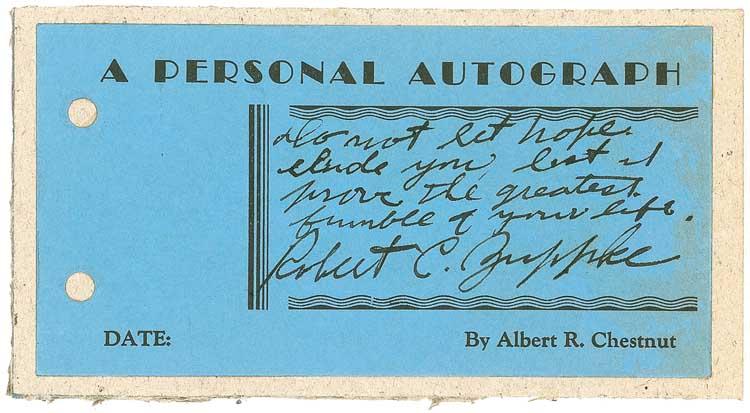 A PERSONAL AUTOGRAPH
Do not let hope
elude you lest it
prove the greatest
fumble of your life.
Robert C. Zuppke
DATE:
By Albert R. Chestnut